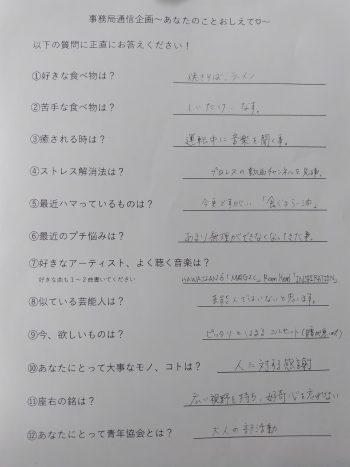 事務局通信企画～あなたのことおしえて♡～
以下の質問に正直にお答えください！
①好きな食べ物は？ 焼きそば、ラーメン
②苦手な食べ物は？ しいたけ、なす。
③癒される時は？ 運転中に音楽を聞く事。
④ストレス解消法は？ プロレスの動画チャンネルを見る事。
⑤最近ハマっているものは？ 今更ですがい 「食べるラー油」
⑥最近のプチ悩みは？ あまり無理ができなくなってきた事。
⑦好きなアーティスト、よく聴く音楽は？
好きな曲も１～２曲書いてください HAWAIIAN6「MAGIC」
⑧似ている芸能人は？ 芸能人ではいないと思います。
⑨今、欲しいものは？ ピッタリとくる
⑩あなたにとって大事なモノ、コトは？ 人に対する感謝
⑪座右の銘は？ 広い視野を持ち、好奇心を
⑫あなたにとって青年協会とは？ 大人の部活動